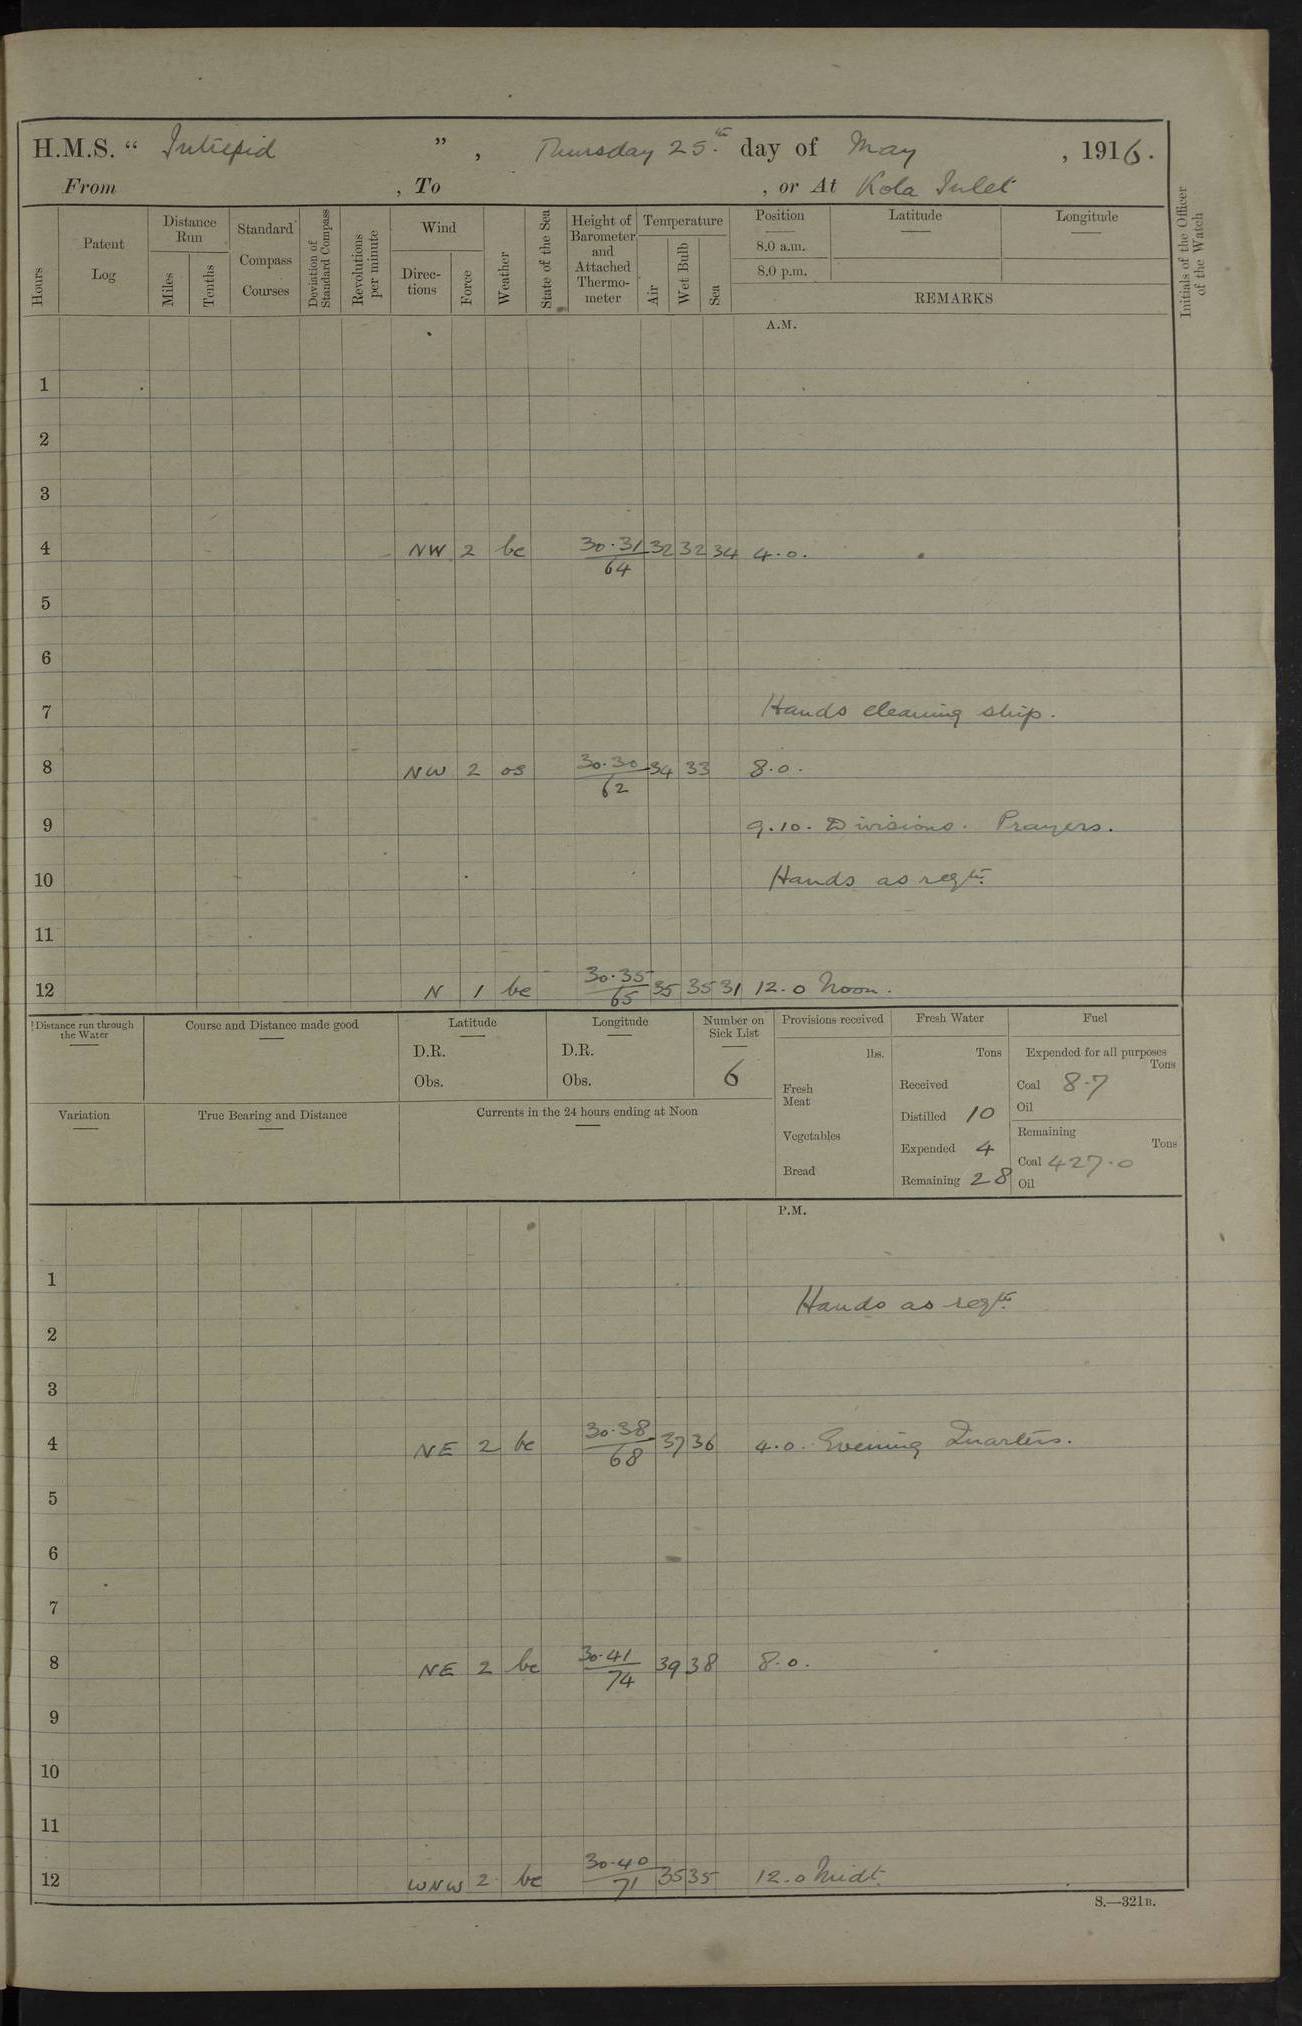 H.M.S. “ Intrepid ” , Thursday 25.th day of May , 1916.
From , To , or At Kola Inlet
Hours
Patent Log
Distance Run
Miles
Tenths
Standard Compass Courses
Deviation of Standard Compass
Revolutions per minute
Wind
Direc-tions
Force
Weather
State of the Sea
Height of Barometer and Attached Thermo-meter
Temperature
Air
Wet Bulb
Sea
Position Latitude Longitude
8.0 a.m.
8.0 p.m.
REMARKS
Initials of the Officer of the Watch
A.M.
1
2
3
4 NW 2 bc 30.31 32 32 34 4.0.
64
5
6
7 Hands cleaning ship.
8 NW 2 os 30.30 34 33 8.0.
62
9 9.10. Divisions. Prayers.
10 Hands as reqte.
11
12 N 1 bc 30.35 35 35 31 12.0 Noon.
65
Distance run through the Water
Course and Distance made good
Latitude
D.R.
Obs.
Longitude
D.R.
Obs.
Number on Sick List
6
Provisions received
lbs.
Fresh Meat
Vegetables
Bread
Fresh Water
Tons
Received
Distilled 10
Expended 4
Remaining 28
Fuel
Expended for all purposes
Tons
Coal 8.7
Oil
Remaining
Tons
Coal 427.0
Oil
Variation
True Bearing and Distance
Currents in the 24 hours ending at Noon
P.M.
1
Hands as reqte.
2
3
4 NE 2 bc 30.38 37 36 4.0. Evening Quarters.
68
5
6
7
8 NE 2 bc 30.41 39 38 8.0.
74
9
10
11
12 WNW 2 bc 30.40 35 35 12.0 Midt.
71
S.—321B.